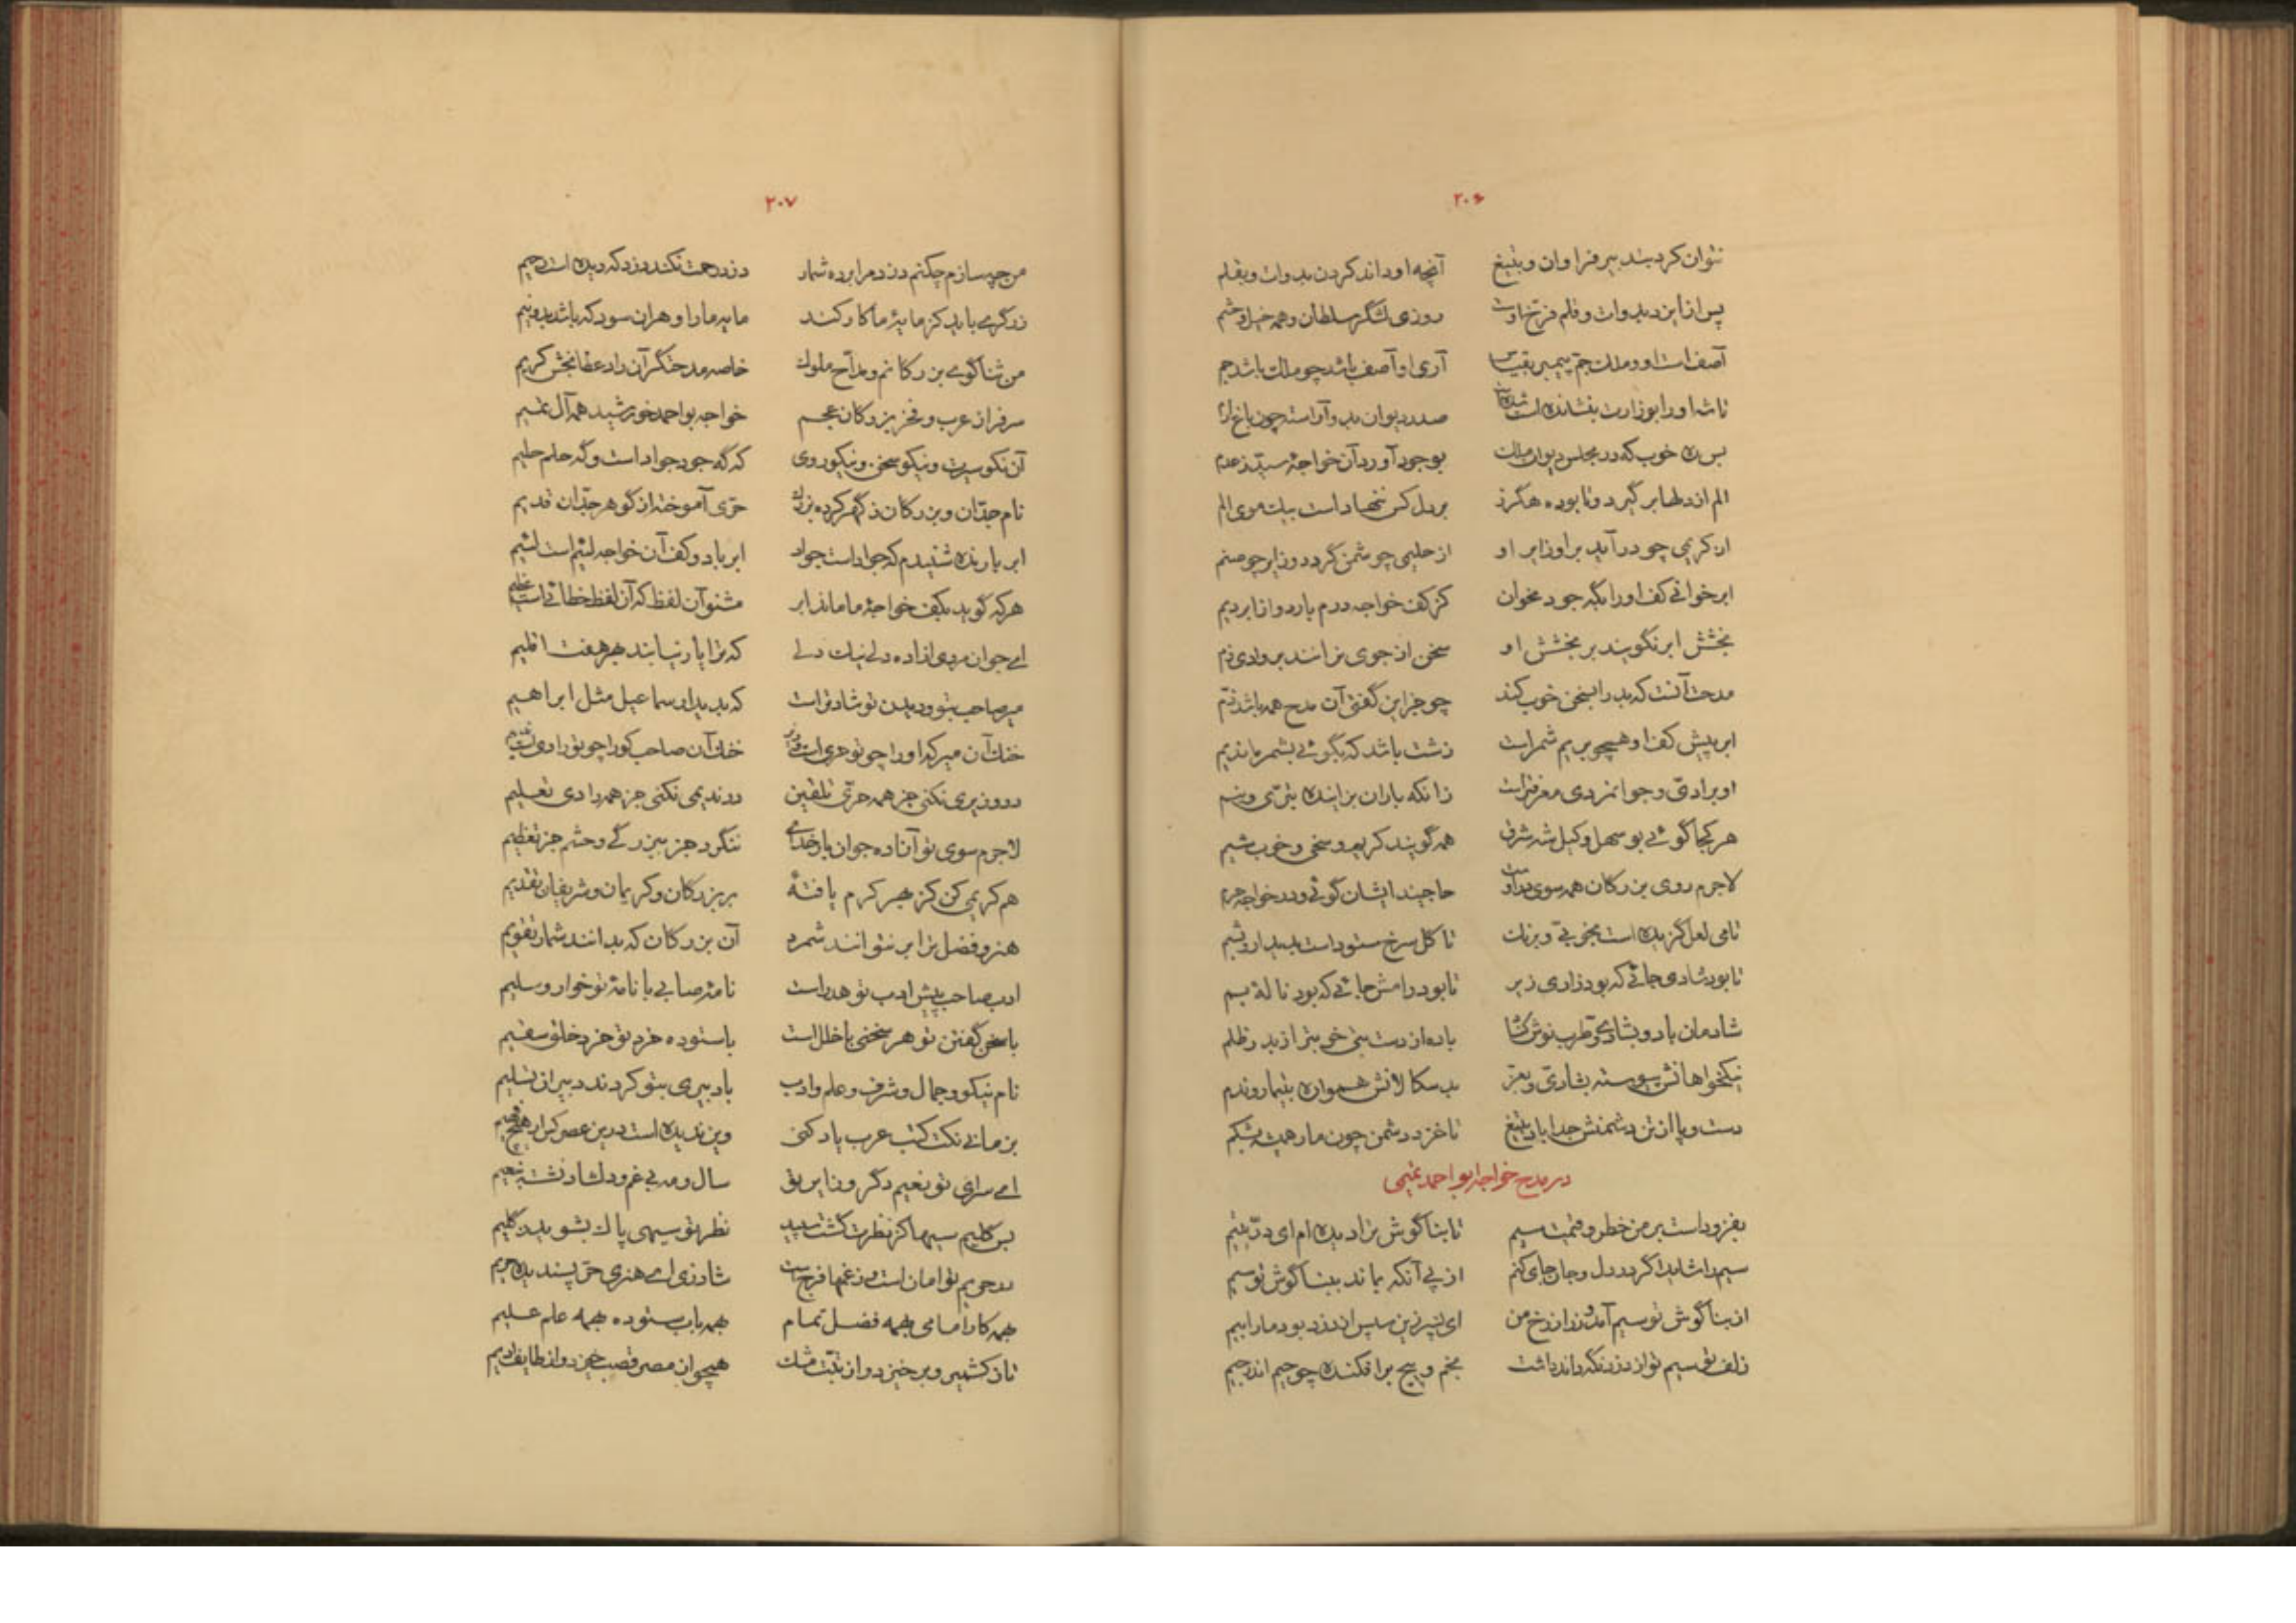 ۲۰۶
نتوان کرد بتدبیر فراوان و بتیغ آنچه او داند کردن بدوات و بقلم
پس از ایزد بدوات و قلم فرخ اوست روزی لشگر سلطان و همه خیل و حشم
آصفست او و ملک جم پیمبر بقیاس آری او آصف باشد چو ملک باشد جم
تا شه او را بوزارت بنشانده است شده است صدر دیوان بدو آراسته چون باغ ارم
بس ره خوب که در مجلس دیوان ملک بوجود آورد آن خواجهٔ سید ز عدم
الم از دلها برگیرد و نابوده هگرز بر دل کس ننهاد است بیک موی الم
از کریمی چو درآید بر او زایر او از حلیمی چو شمن گردد و زایر چو صنم
ابر خوانی کف او را بگه جود مخوان کز کف خواجه درم بارد و از ابر دیم
بخشش ابر نگویند بر بخشش او سخن از جوی نرانند بر وادی زم
مدحت آنست که بد را بسخن خوب کند چو جز این گفتی آن مدح همه باشد ذم
ابر پیش کف او همچو بر یم شمر است زشت باشد که بگوئی بشمر ماند یم
او برادی و جوانمردی معروفتر است زانکه باران بزاینده بتری و بنم
هر کجا گوئی بو سهل وکیل شه شرق همه گویند کریم و سخی و خوب شیم
لاجرم روی بزرگان همه سوی در اوست حاجیند ایشان گوئی و در خواجه حرم
تا می لعل گزیده است بخوبی و برنگ تا گل سرخ ستوداست بدیدار و بشم
تا بود شادی جائی که بود زاری زیر تا بود رامش جائی که بود نالهٔ بم
شادمان باد و بشادی و طرب نوش کناد باده از دست بتی خوبتر از بدر ظلم
نیکخواهانش پیوسته بشادی و بعز بدسگالانش همواره بتیمار و ندم
دست و پا از تن دشمنش جدا باد بتیغ تا خزد دشمن چون مار همیشه بشکم
در مدح خواجه ابو احمد تمیمی
بفزود است بر من خطر و قیمت سیم تا بناگوش ترا دیده ام ای در یتیم
سیم را شاید اگر در دل و جان جای کنم از پی آنکه بماند ببناگوش تو سیم
از بناگوش تو سیم آمد و زر از رخ من ای پسر زین سپس از دزد بود ما را بیم
زلف تو سیم تو از دزد نگه داند داشت بخم و پیچ برافکنده چو جیم اندر جیم
۲۰۷
من چه سازم چکنم دزد مرا برده شمار دزد رحمت نکند دزد که دید است رحیم
زرگری باید کز مایهٔ ما کار کند مایه ما را و هر آن سود که باشد بدو نیم
من ثناگوی بزرگانم و مداح ملوک خاصه مدحتگر آن راد عطا بخش کریم
سرفراز عرب و فخر بزرگان عجم خواجه بو احمد خورشید همه آل تمیم
آن نکو سیرت و نیکو سخن و نیکو روی که گه جود جواد است و گه حلم حلیم
نام جدان و بزرگان ز گهر کرده بزرگ حری آموخته از گوهر جدان قدیم
ابر بارنده شنیدم که جواد است جواد ابر باد و کف آن خواجه لئیم است لئیم
هر که گوید بکف خواجهٔ ما ماند ابر مشنو آن لفظ که آن لفظ خطائی است عظیم
ای جوانمردی آزاده دلی نیک دلی که ترا یار نیابند بهر هفت اقلیم
میر صاحب بتو و دیدن تو شادتر است که بدیدار سماعیل مثل ابراهیم
خنک آن میر که او را چو تو حری است وزیر خنک آن صاحب کو را چو تو رادی است ندیم
در وزیری نکنی جز همه حری تلقین در ندیمی نکنی جز همه رادی تعلیم
لاجرم سوی تو آزاده جوان بار خدای ننگرد جز ببزرگی و بچشم جز تعظیم
هم کریمی کن کز بهر کرم یافتهٔ بر بزرگان و کریمان و شریفان تقدیم
هنر و فضل ترا بر نتوانند شمرد آن بزرگان که بدانند شمار تقویم
ادب صاحب پیش ادب تو هدر است نامهٔ صابی با نامهٔ تو خوار و سلیم
با سخن گفتن تو هر سخنی با خلل است با ستوده خرد تو خرد خلق سقیم
نام نیکو و جمال و شرف و علم و ادب با دبیری بتو کردند دبیران تسلیم
بزمانی نکت کتب عرب یاد کنی وین ندیده است درین عصر کس از هیچ فهیم
ای سرای تو نعیم دگر و زایر تو سال و مه بی غم و دلشاد نشسته بنعیم
بس گلیم سیها کز نظرت گشت سپید نظر تو سیهی پاک بشوید ز گلیم
در حریم تو امان است و ز غمها فرج است شاد زی ای هنری حر پسندیده حریم
بهمه کار امامی بهمه فضل تمام بهمه باب ستوده بهمه علم علیم
تا ز کشمیر و برخیزد و از تبت مشک همچو از مصر قصب خیزد و از طایف ادیم